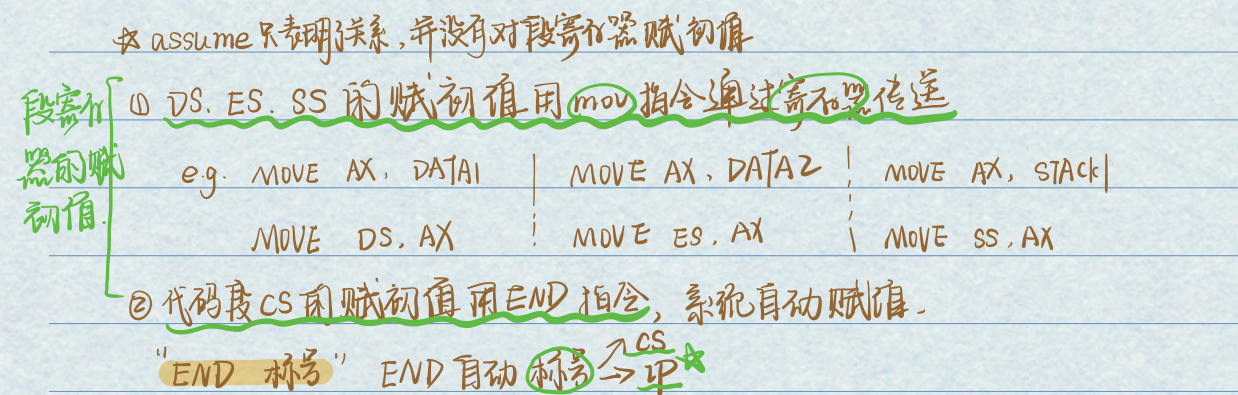 ☆ assume只表明关系,并没有对段寄存器赋初值
段寄存器的赋初值.
① DS. ES. SS 的赋初值用mov指令通过寄存器传送
e.g. MOVE AX, DATA1 | MOVE AX, DATA2 | MOVE AX, STACK1
MOVE DS, AX | MOVE ES, AX | MOVE SS, AX
② 代码段CS的赋初值用END指令, 系统自动赋值.
"END 标号" END自动 标号 ↗ CS → IP ☆